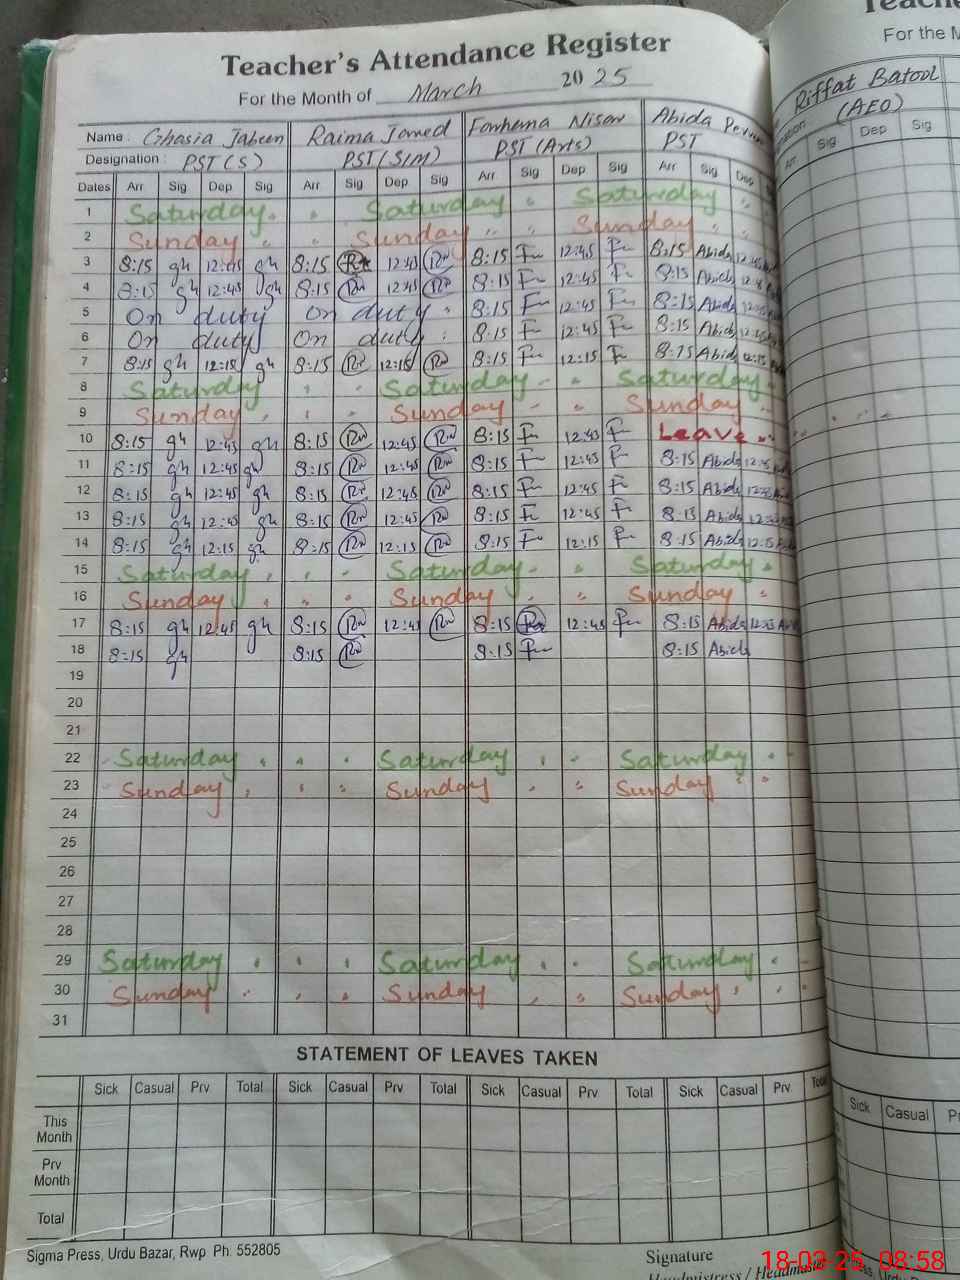 Teacher's Attendance Register
For the Month of March 2025
Name : Ghasia Jabeen Raima Javed Farhana Nisar Abida
Designation : PST (S) PST (SIM) PST (Arts) PST
Dates Arr Sig Dep Sig Arr Sig Dep Sig Arr Sig Dep Sig Arr Sig Dep
1 Saturday " Saturday " Saturday "
2 Sunday " " Sunday " " Sunday " "
3 8:15 gh 12:45 gh 8:15 Rw 12:45 Rw 8:15 Fn 12:45 Fn 8:15 Abida 12:45
4 8:15 gh 12:45 gh 8:15 Rw 12:45 Rw 8:15 Fn 12:45 Fn 8:15 Abida 12:45
5 On duty On duty 8:15 Fn 12:45 Fn 8:15 Abida 12:45
6 On duty On duty 8:15 Fn 12:45 Fn 8:15 Abida 12:45
7 8:15 gh 12:15 gh 8:15 Rw 12:15 Rw 8:15 Fn 12:15 Fn 8:15 Abida 12:15
8 Saturday " " Saturday " " Saturday "
9 Sunday " " Sunday " " Sunday "
10 8:15 gh 12:45 gh 8:15 Rw 12:45 Rw 8:15 Fn 12:45 Fn Leave "
11 8:15 gh 12:45 gh 8:15 Rw 12:45 Rw 8:15 Fn 12:45 Fn 8:15 Abida 12:45
12 8:15 gh 12:45 gh 8:15 Rw 12:45 Rw 8:15 Fn 12:45 Fn 8:15 Abida 12:45
13 8:15 gh 12:45 gh 8:15 Rw 12:45 Rw 8:15 Fn 12:45 Fn 8:15 Abida 12:45
14 8:15 gh 12:15 gh 8:15 Rw 12:15 Rw 8:15 Fn 12:15 Fn 8:15 Abida 12:15
15 Saturday " " " Saturday " " Saturday "
16 Sunday " " " Sunday " " Sunday "
17 8:15 gh 12:45 gh 8:15 Rw 12:45 Rw 8:15 12:45 Fn 8:15 Abida 12:45
18 8:15 gh 8:15 Rw 8:15 Fn 8:15 Abida
19
20
21
22 Saturday " " " Saturday " " Saturday "
23 Sunday " " " Sunday " " Sunday " "
24
25
26
27
28
29 Saturday " " " Saturday " " Saturday "
30 Sunday " " " Sunday " " Sunday " "
31
STATEMENT OF LEAVES TAKEN
Sick Casual Prv Total Sick Casual Prv Total Sick Casual Prv Total Sick Casual Prv. Total
This Month
Prv Month
Total
Sigma Press, Urdu Bazar, Rwp Ph: 552805
Signature
Headmistress / Headmaster
For the M
Riffat Batool
(AEO)
Arr Sig Dep Sig
Sick Casual
18-03-25 08:58